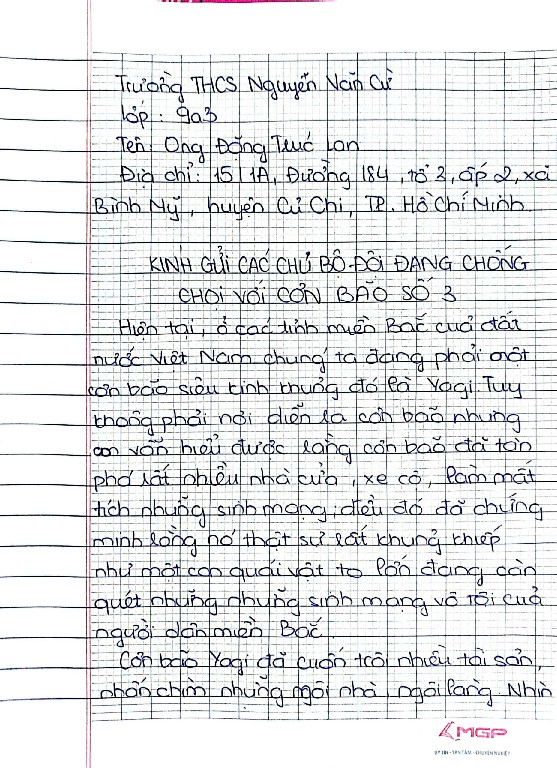 Trường THCS Nguyễn Văn Cừ
Lớp : 9a3
Tên: Ong Đặng Trúc Lan
Địa chỉ: 15|1A, Đường 184, tổ 3, ấp 2, xã
Bình Mỹ, huyện Củ Chi, TP. Hồ Chí Minh
KÍNH GỬI CÁC CHÚ BỘ ĐỘI ĐANG CHỐNG
CHỌI VỚI CƠN BÃO SỐ 3
Hiện tại, ở các tỉnh miền Bắc cuả đất
nước Việt Nam chúng ta đang phải một
cơn bão siêu kinh khủng đó là Yagi. Tuy
không phải nơi diễn ra cơn bão nhưng
con vẫn hiểu được rằng cơn bão đã tàn
phá rất nhiều nhà cửa, xe cộ, làm mất
tích những sinh mạng, điều đó đã chứng
minh rằng nó thật sự rất khủng khiếp
như một con quái vật to lớn đang càn
quét những những sinh mạng vô tội cuả
người dân miền Bắc.
Cơn bão Yagi đã cuốn trôi nhiều tài sản,
nhấn chìm những ngôi nhà, ngôi làng. Nhìn
MGP
ĐẸP - TẬN TÂM - CHUYÊN NGHIỆP